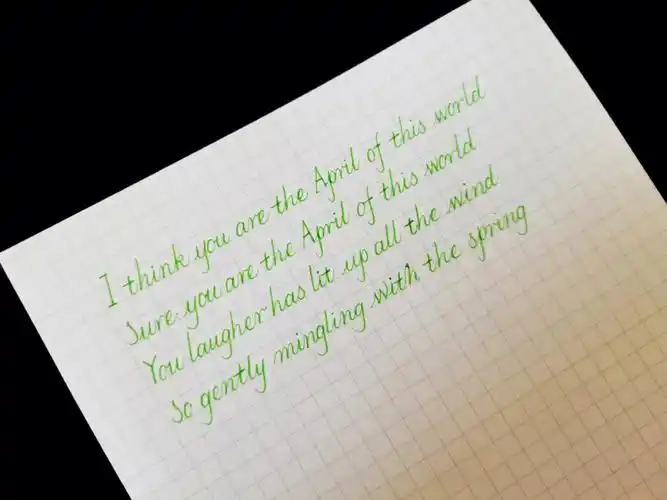 I think you are the April of this world
Sure you are the April of this world
You laugher has lit up all the wind
So gently mingling with the spring